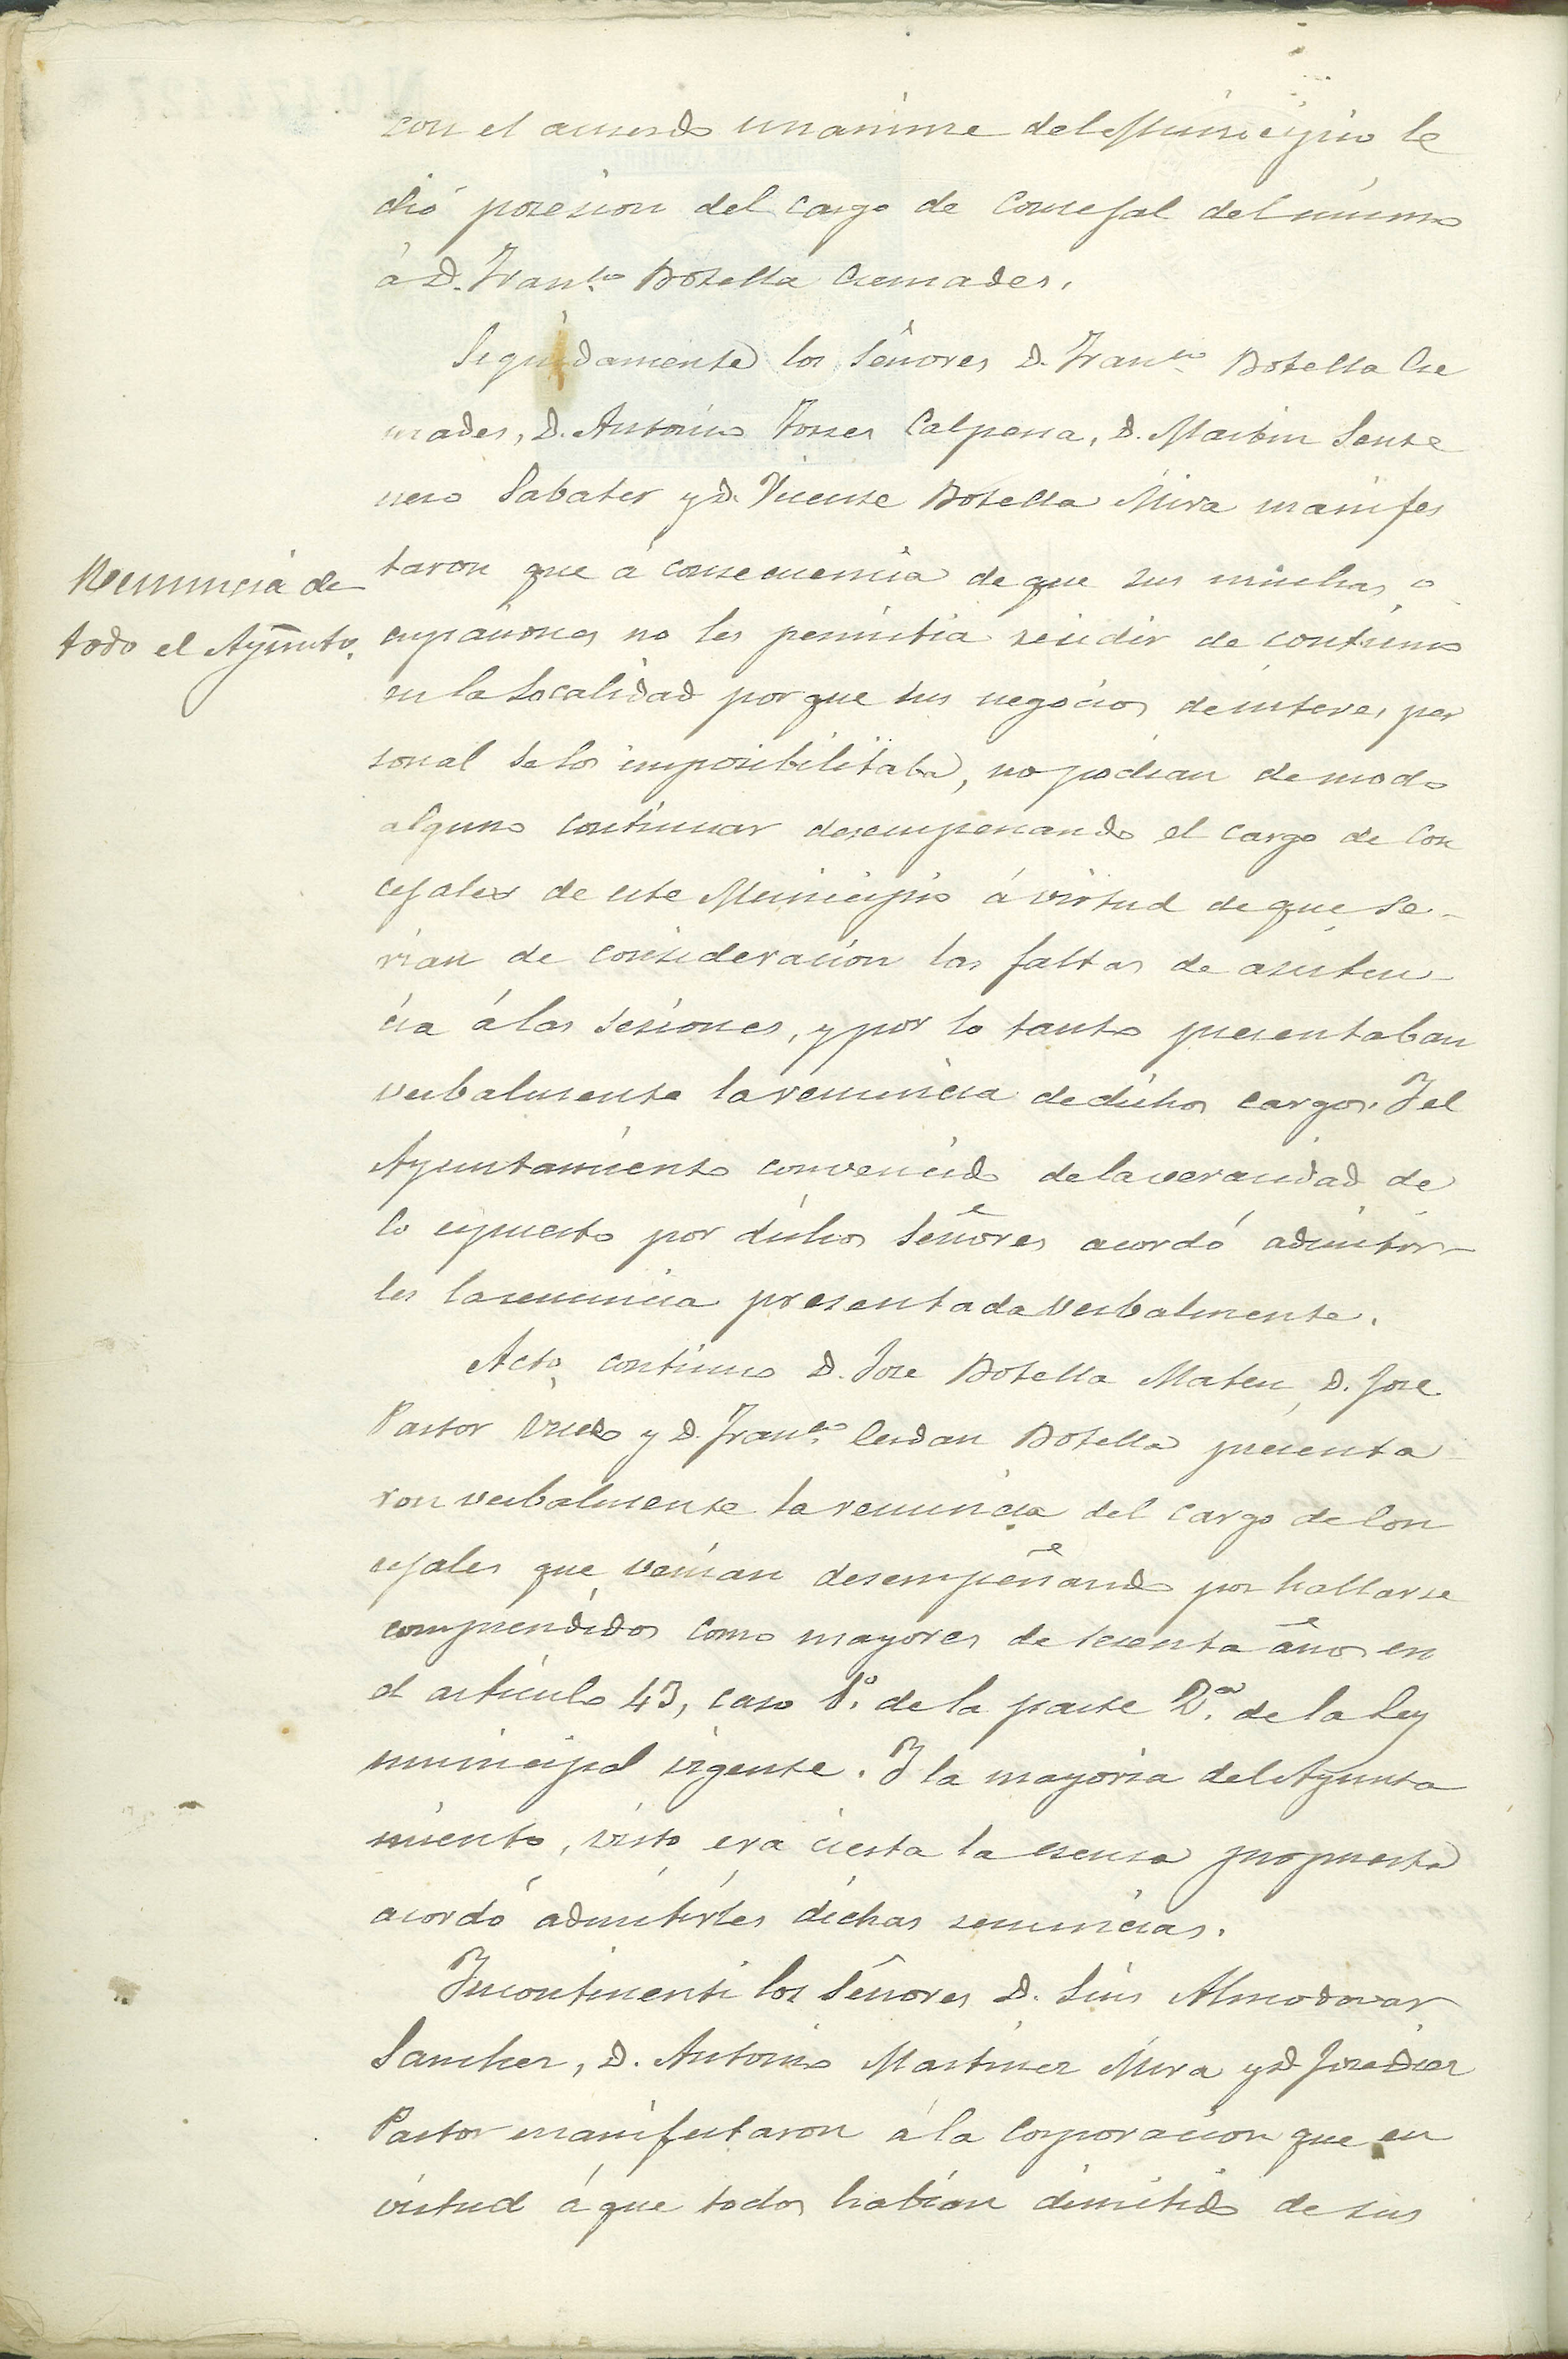 con el acuerdo unanime del Municipio le
dió posesion del cargo de Concejal del mismo
á D. Fran.co Botella Cremades.
Seguidamente los Señores D. Fran.co Botella Cre
mades, D. Antonio Torres Calpena, D. Martin Sente
nero Sabater y D. Vicente Botella Mira manifes
Renuncia de
todo el Ayunto.
taron que á consecuencia de que sus muchas o
cupaciones no les permitia residir de continuo
en la Localidad por que sus negocios de interes per
sonal se los imposibilitaba, no podian de modo
alguno continuar desempenando el cargo de Con
cejales de este Municipio á virtud de que se-
rian de consideracion las faltas de asisten-
cia á las sesiones, y por lo tanto presentaban
verbalmente la renuncia de dichos cargos. Y el
Ayuntamiento convencido de la veracidad de
lo espuesto por dichos Señores acordó admitir-
les la renuncia presentada verbalmente.
Acto continuo D. Jose Botella Mateu, D. Jose
Pastor y D. Fran.co Cerdan Botella presenta
ron verbalmente la renuncia del cargo de Con
cejales que venian desempeñando por hallarse
comprendidos como mayores de sesenta años en
el articulo 43, caso 1º. de la parte 2.ª de la Ley
municipal vigente. Y la mayoria del Ayunta
miento, visto era cierta la escusa propuesta
acordó admitirles dichas renuncias.
Incontinenti los Señores D. Luis Almodovar
Sanchez, D. Antonio Martinez Mira y D. Jose Diez
Pastor manifestaron á la Corporacion que en
virtud á que todos habian dimitido de sus